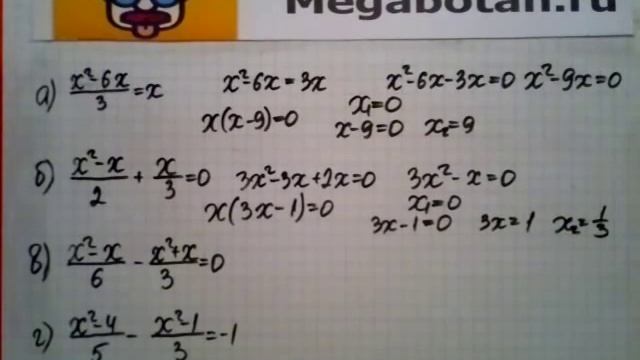 Megabotan.ru
а) (x²-6x)/3 = x   x²-6x = 3x   x²-6x-3x=0   x²-9x=0
x(x-9)=0   x₁=0
x-9=0   x₂=9
б) (x²-x)/2 + x/3 = 0   3x²-3x+2x=0   3x²-x=0
x(3x-1)=0   x₁=0
3x-1=0   3x=1   x₂=1/3
в) (x²-x)/6 - (x²+x)/3 = 0
г) (x²-4)/5 - (x²-1)/3 = -1